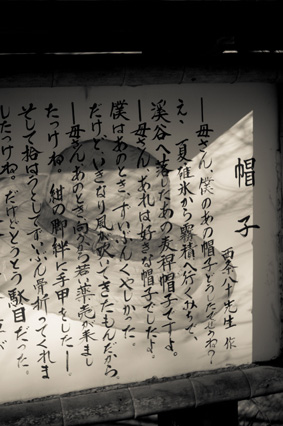 帽子
西条八十先生 作
―母さん、僕のあの帽子どうしたでせうね?
えゝ、夏碓氷から霧積へ行くみちで、
溪谷へ落したあの麦稈帽子ですよ。
―母さん、あれは好きな帽子でしたよ。
僕はあのとき、ずいぶんくやしかった。
だけど、いきなり風が吹いてきたもんだから。
―母さん、あのとき向うから若い薬売が来まし
たっけね。紺の脚絆に手甲をした―
そして拾はうとしてずいぶん骨折ってくれま
したっけね。だけどとうとう駄目だった。